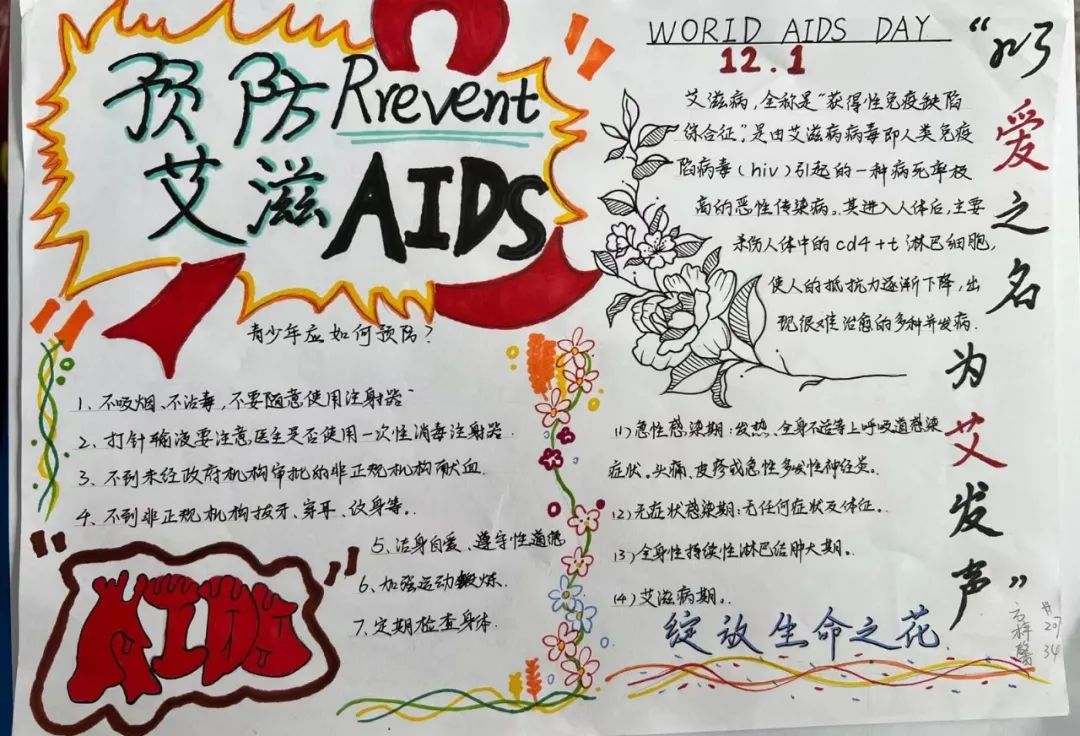 预防 Rrevent
艾滋 AIDS
青少年应如何预防？
1、不吸烟、不沾毒，不要随意使用注射器
2、打针输液要注意医生是否使用一次性消毒注射器.
3、不到未经政府机构审批的非正规机构献血.
4、不到非正规机构拔牙、穿耳、纹身等。.
5、洁身自爱、遵守性道德
6、加强运动锻炼.
7、定期检查身体.
AIDS
WORID AIDS DAY
12.1
艾滋病，全称是"获得性免疫缺陷
综合征"。是由艾滋病病毒即人类免疫
陷病毒(hiv)引起的一种病死率极
高的恶性传染病。其进入人体后，主要
杀伤人体中的cd4+t淋巴细胞，
使人的抵抗力逐渐下降，出
现很难治愈的多种并发病.
(1)急性感染期：发热、全身不适等上呼吸道感染
症状。头痛、皮疹或急性多发性神经炎。.
(2)无症状感染期：无任何症状及体征。.
(3)全身性持续性淋巴结肿大期。.
(4)艾滋病期。.
绽放生命之花
"以爱之名 为艾发声"
207
34